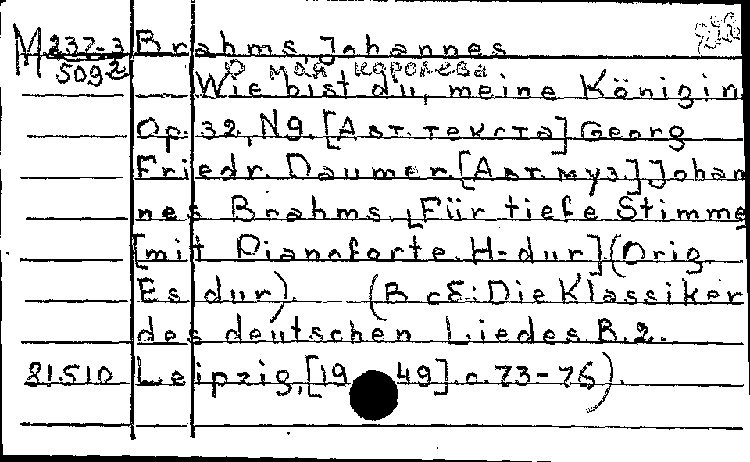 М 237-3 Brahms, Johannes
5092 О моя королева
Wie bist du, meine Königin
Op. 32, N9. [Авт. текста] Georg
Friedr. Daumer. [Авт. муз.] Johan
nes Brahms. Für tiefe Stimme
[mit Pianoforte. H-dur] (Orig
Es dur). (В сб: Die Klassiker
des deutschen Liedes B. 2.
81510 Leipzig, [19 49]. с. 73-76).